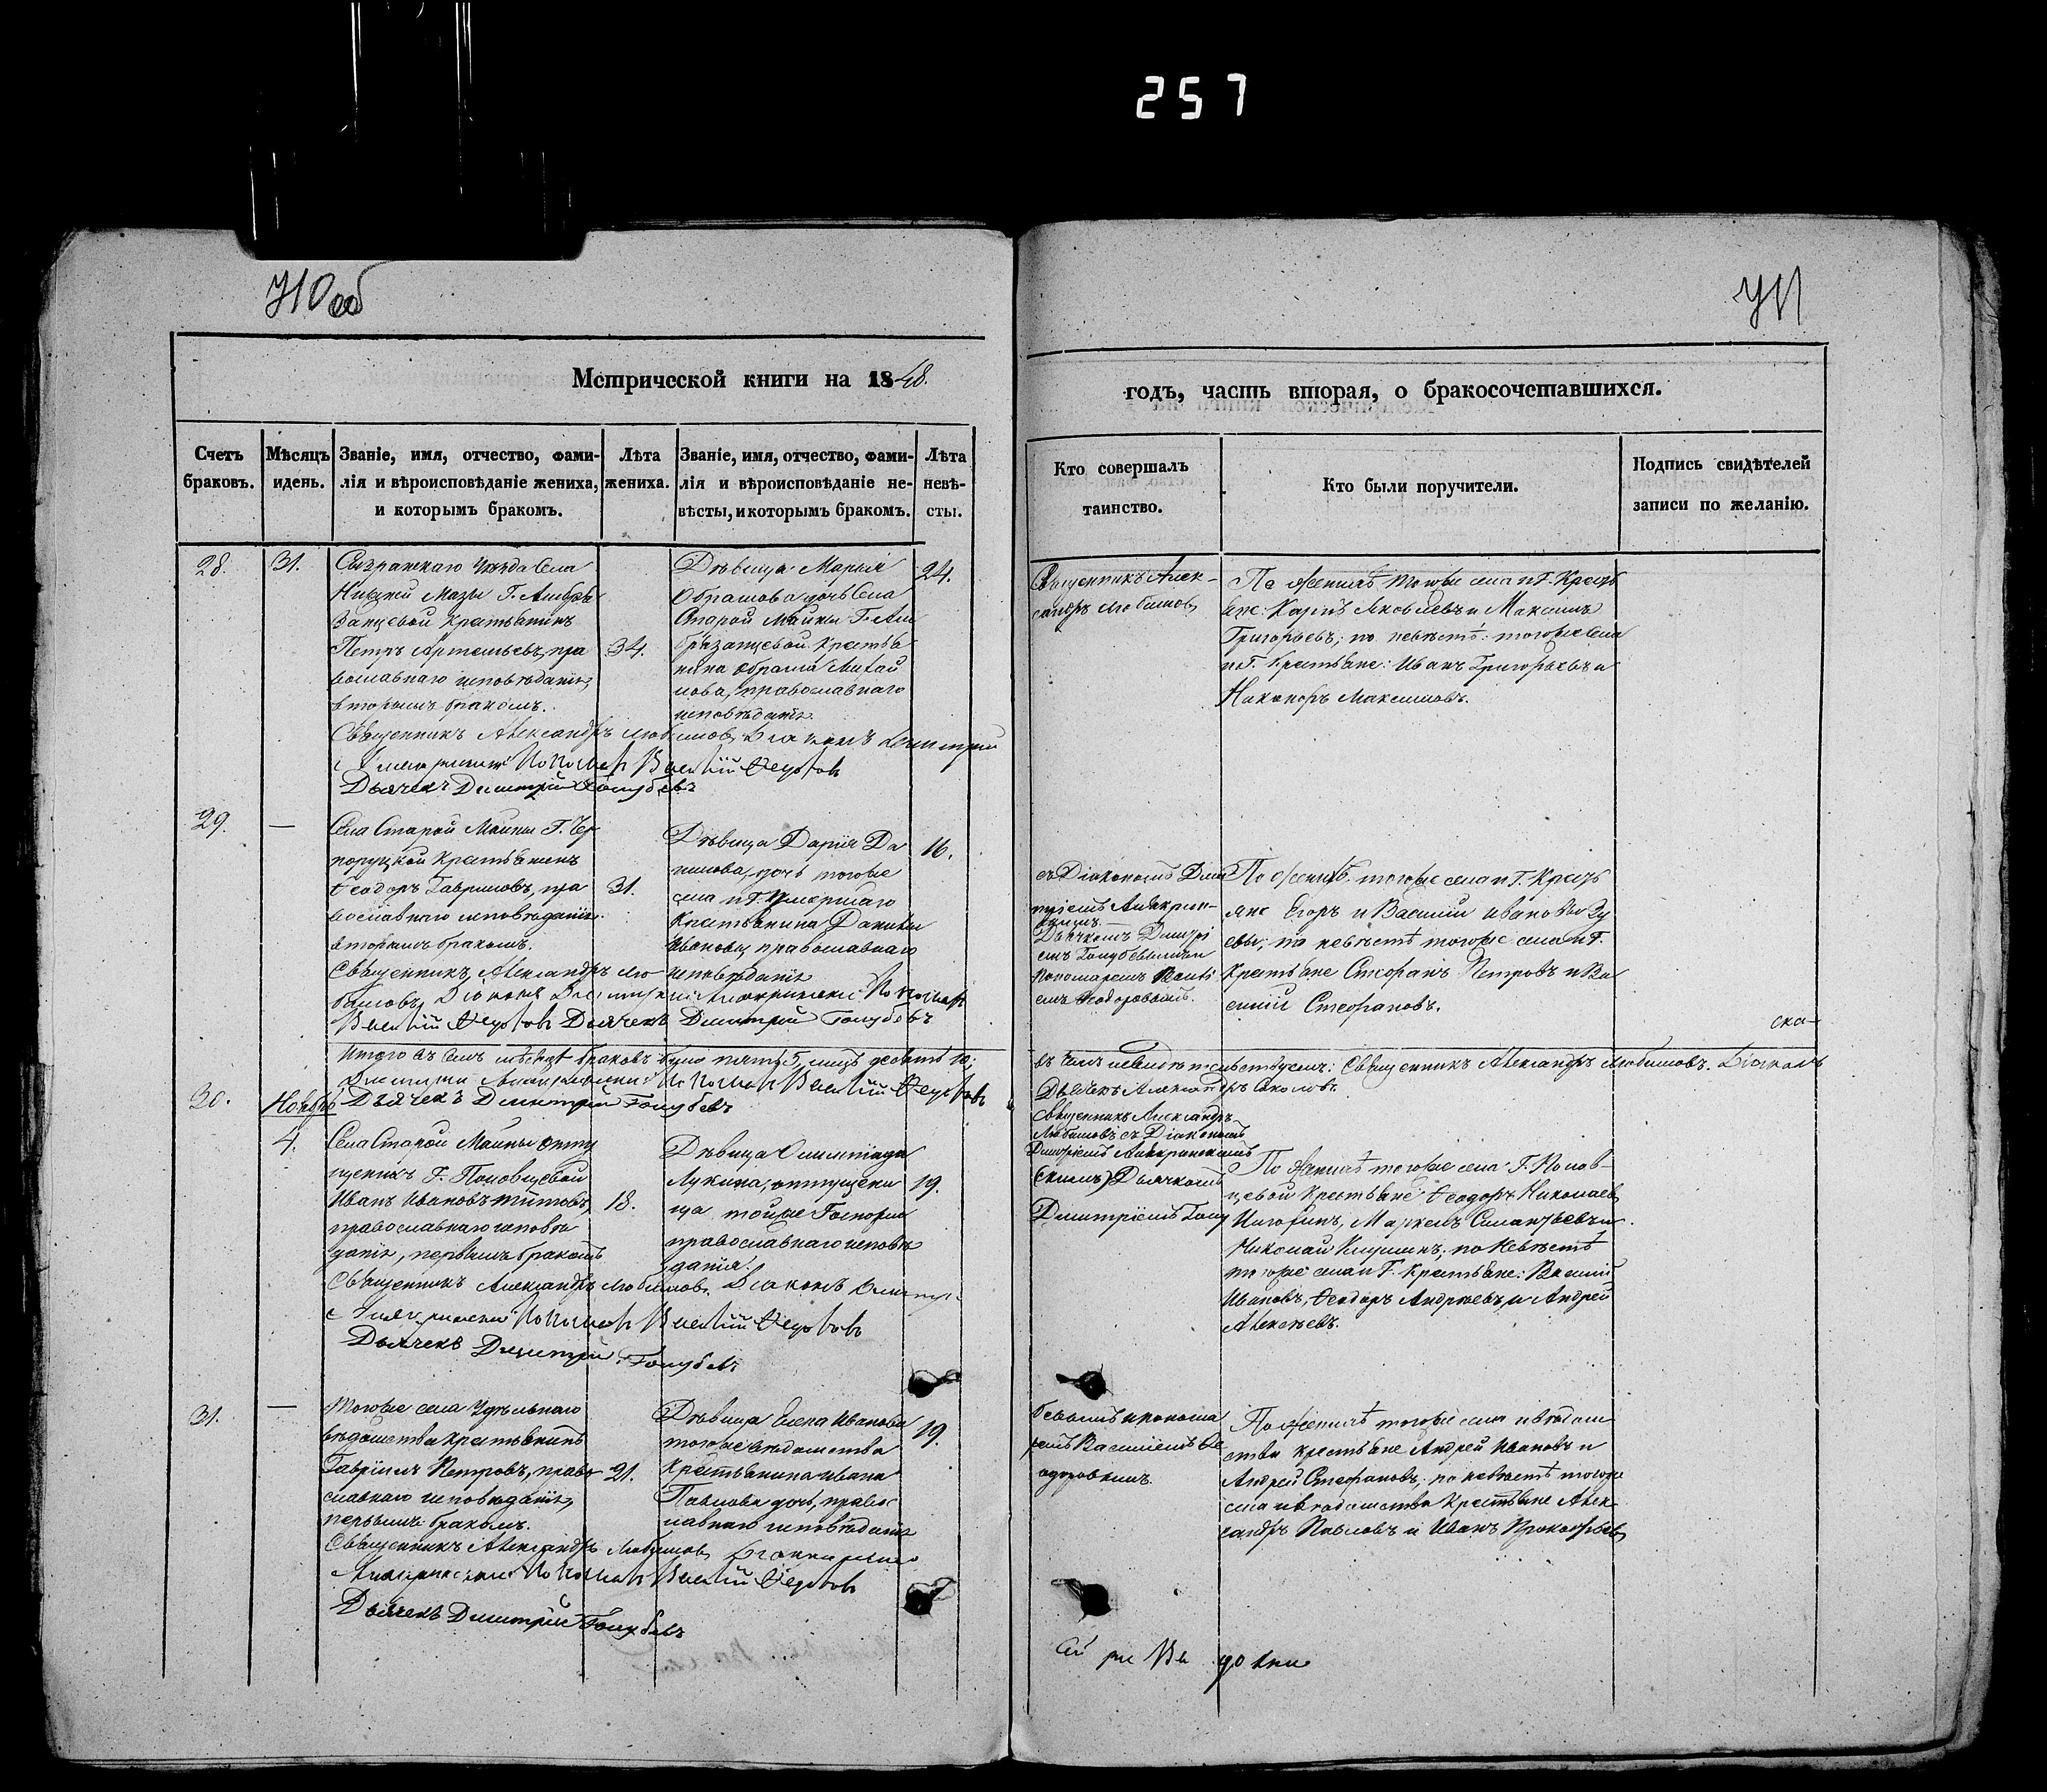 257
710 об
711
Метрической книги на 1848.
годъ, часть вторая, о бракосочетавшихся.
Счетъ браковъ.
Мѣсяцъ и день.
Званіе, имя, отчество, фами-
лія и вѣроисповѣданіе жениха,
и которымъ бракомъ.
Лѣта
жениха.
Званіе, имя, отчество, фами-
лія и вѣроисповѣданіе не-
вѣсты, и которымъ бракомъ.
Лѣта
невѣ-
сты.
Кто совершалъ
таинство.
Кто были поручители.
Подпись свидѣтелей
записи по желанію.
28.
31.
Сызранскаго уѣзда села
Нижней Мазы Г.
занцевой крестьянинъ
Петръ Артемьевъ, пра
вославнаго исповѣданія,
вторымъ бракомъ.
34.
Дѣвица Марья
дочь села
Старой Майны Г.
крестья
нина
нова, православнаго
исповѣданія.
24.
Священникъ Алек-
сандръ Любимовъ
По женихѣ тогоже села и Г. Кресть
яне: Карпъ Яковлевъ и Максимъ
Григорьевъ; по невѣстѣ: тогоже села
и Г. Крестьяне: Иванъ Григорьевъ и
Никоноръ Максимовъ.
Священникъ Александръ Любимовъ Діаконъ Димитрій
Пономарь Василій
Дьячекъ Димитрій Голубевъ
29.
—
Села Старой Майны Г. Чер
норуцкой крестьянинъ
Ѳеодоръ Гавриловъ, пра
вославнаго исповѣданія
вторымъ бракомъ.
31.
Дѣвица Дарія Да
нилова, дочь тогоже
села и Г. умершаго
Крестьянина Данилы
Иванова, православнаго
исповѣданія
16.
съ Діакономъ Дими
тріемъ
Дьячкомъ Димитрі
емъ Голубевымъ и
Пономаремъ Василі
емъ Ѳеодоровымъ.
По женихѣ тогоже села и Г. Кресть
яне Егоръ и Василій Ивановы Зу
евы; по невѣстѣ тогоже села и Г.
Крестьяне Стефанъ Петровъ и Ва
силій Стефановъ.
Священникъ Александръ Лю-
бимовъ, Діаконъ Пономарь
Василій Дьячекъ Димитрій Голубевъ
ска-
Итого въ семъ мѣсяцѣ браковъ было пять 5, лицъ десять 10;
въ чемъ и свидѣтельствуемъ: Священникъ Александръ Любимовъ. Діаконъ
Пономарь Василій
Дьячекъ Димитрій Голубевъ
Дьячекъ Александръ Соколовъ
30.
Ноябрь
4.
Села Старой Майны отпу
щенникъ Г. Половцевой
Иванъ Ивановъ Титовъ,
православнаго исповѣ
данія, первымъ бракомъ
18.
Дѣвица Олимпіада
Лукина, отпущенни
ца тойже Госпожи
православнаго исповѣ
данія.
19.
Священникъ Александръ
Любимовъ съ Діакономъ
Димитріемъ
(скимъ) Дьячкомъ
Димитріемъ Голу
По женихѣ тогоже села Г. Полов-
цевой Крестьяне Ѳеодоръ Николаевъ
Маркелъ и
Николай по невѣстѣ
тогоже села и Г. Крестьяне: Василій
Ивановъ, Ѳеодоръ Андреевъ и Андрей
Алексѣевъ.
Священникъ Александръ Любимовъ. Діаконъ
Пономарь Василій
Дьячекъ Димитрій Голубевъ
31.
—
Тогоже села Удѣльнаго
вѣдомства крестьянинъ
Гавріилъ Петровъ, право
славнаго исповѣданія,
первымъ бракомъ.
21.
Дѣвица Елена Иванова
тогоже вѣдомства
крестьянина Ивана
Павлова дочь, правос
лавнаго исповѣданія
19.
бевымъ и понома
ремъ Василіемъ Ѳе
одоровымъ.
По женихѣ тогоже села и вѣдом
ства крестьяне Андрей Ивановъ и
Андрей Стефановъ; по невѣстѣ тогоже
села и вѣдомства крестьяне Алек-
сандръ Павловъ и Иванъ Прокофьевъ
Священникъ Александръ Любимовъ
Пономарь Василій
Дьячекъ Димитрій Голубевъ